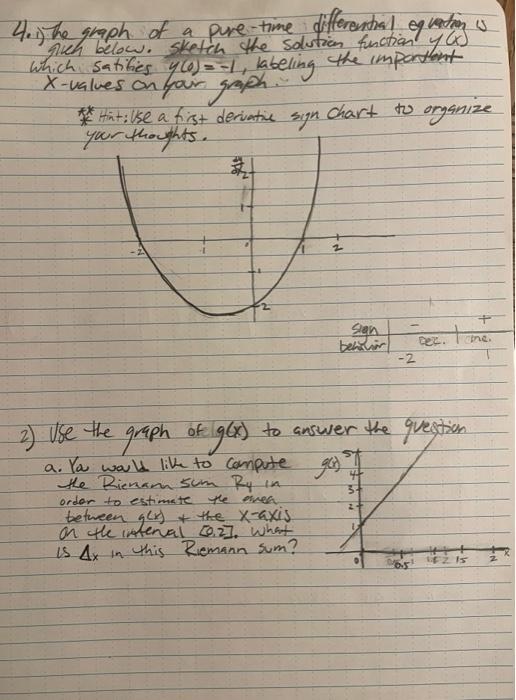 4. 1) The graph of a pure-time differential equation is
given below. sketch the solution function y(x)
which satifies y(0)=-1, labeling the important
x-values on your graph.
** Hint: Use a first derivative sign chart to organize
your thoughts.
dy/dx
2
1
-2 -1 1 2
-1
-2
sign - +
behavior Dec. Inc.
-2 1
2) Use the graph of g(x) to answer the question
a. You would like to compute
the Riemann sum R4 in
order to estimate the area
between g(x) + the x-axis
on the interval [0,2]. What
is Δx in this Riemann sum?
g(x) 5
4
3
2
1
0 0.5 1 1.5 2 x